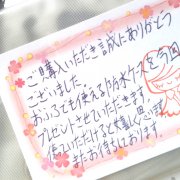 ご購入いただき誠にありがとう
ございました。
おふろでも使える防水ケースを今回
プレゼントさせていただきます。
使っていただけると嬉しく思います
またお待ちしております。